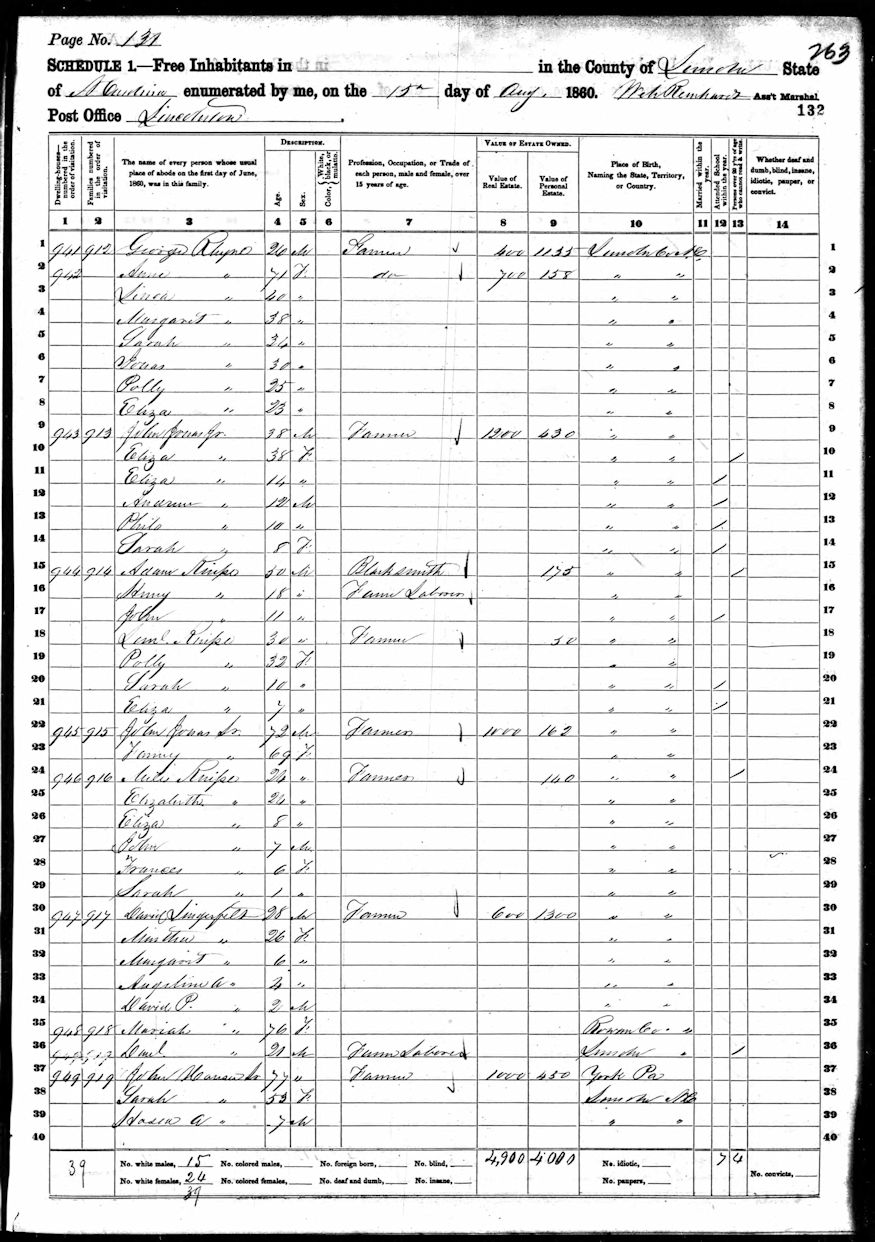 Page No. 131
263
SCHEDULE 1.—Free Inhabitants in in the County of Lincoln State
of N Carolina enumerated by me, on the 15th day of Aug. 1860. Wm Reinhardt Ass't Marshal
132
Post Office Lincolnton
Dwelling-houses—numbered in the order of visitation.
Families numbered in the order of visitation.
The name of every person whose usual place of abode on the first day of June, 1860, was in this family.
DESCRIPTION.
Age.
Sex.
Color, White, black, or mulatto.
Profession, Occupation, or Trade of each person, male and female, over 15 years of age.
VALUE OF ESTATE OWNED.
Value of Real Estate.
Value of Personal Estate.
Place of Birth, Naming the State, Territory, or Country.
Married within the year.
Attended School within the year.
Persons over 20 y'rs of age who cannot read & write.
Whether deaf and dumb, blind, insane, idiotic, pauper, or convict.
1 2 3 4 5 6 7 8 9 10 11 12 13 14
1 941 912 George Rhyne 26 M Farmer 400 1135 Lincoln Co N.C 1
2 942 Anne " 71 F do 700 158 " " 2
3 " 40 " " " 3
4 Margaret " 38 " " " 4
5 Sarah " 34 " " " 5
6 Jonas " 30 " " " 6
7 Polly " 25 " " " 7
8 Eliza " 23 " " " 8
9 943 913 John Jonas Jr. 38 M Farmer 1200 430 " " 9
10 Eliza " 38 F " " / 10
11 Eliza " 14 " " " / 11
12 Andrew " 12 M " " / 12
13 Philo " 10 " " " / 13
14 Sarah " 8 F " " / 14
15 944 914 Adam Knipe 50 M Blacksmith 175 " " / 15
16 Henry " 18 " Farm Laborer " " 16
17 John " 11 " " " / 17
18 Leml. Knipe 30 " Farmer 50 " " 18
19 Polly " 32 F " " 19
20 Sarah " 10 " " " / 20
21 Eliza " 7 " " " / 21
22 945 915 John Jonas Sr. 72 M Farmer 1000 162 " " 22
23 Fanny " 69 F " " 23
24 946 916 Miles Knipe 24 " Farmer 140 " " / 24
25 Elizabeth " 24 " " " 25
26 Eliza " 8 " " " 26
27 John " 7 M " " 27
28 Frances " 6 F " " 28
29 Sarah " 1 " " " 29
30 947 917 David Lingerfelt 28 M Farmer 600 1300 " " 30
31 " 26 F " " 31
32 Margaret " 6 " " " 32
33 Angeline A " 4 " " " 33
34 David P. " 2 M " " 34
35 948 918 Mariah " 76 F Rowan Co. " 35
36 Danl. " 21 M Farm Laborer Lincoln " / 36
37 949 919 John Sr 77 " Farmer 1000 450 York Pa 37
38 Sarah " 53 F Lincoln N.C 38
39 Hosea A " 7 M " " 39
40 40
39 No. white males, 15 No. colored males, No. foreign born, No. blind, 4,900 4000 No. idiotic, 7 4
No. white females, 24 No. colored females, No. deaf and dumb, No. insane, No. paupers, No. convicts,
39